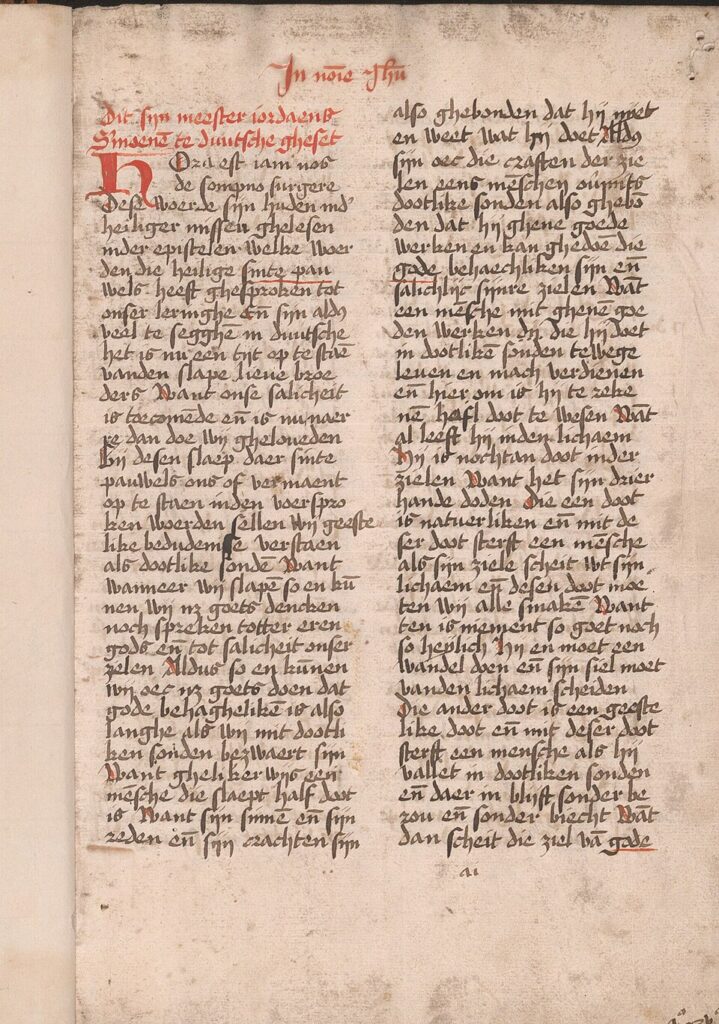 In noīe Jhū
Dit sijn meester iordaens
Smoenē te duutsche gheset
HOra est iam nos
de sompno surgere
Dese woerde sijn huden ind'
heiliger missen ghelesen
inder epistelen welke woer
den die heilige sinte pau
wels heeft ghesproken tot
onser leringhe Eñ sijn aldus
veel te segghen in duutsche
het is nu een tijt op te staē
vanden slape lieue broe
ders Want onse salicheit
is toecomēde eñ is nu naer
re dan doe wij gheloueden
Bij desen slaep daer sinte
pauwels ons of vermaent
op te staen inden voerspro
ken woerden sellen wij geeste
like bedudenisse verstaen
als dootlike sondē Want
wanneer wij slapē so en kū
nen wij nz goets dencken
noch spreken totter eren
gods eñ tot salicheit onser
zelen Aldus so en kūnen
wij oec nz goets doen dat
gode behaghelikē is also
langhe als wij mit dootli
ken sonden bezwaert sijn
Want gheliker wijs een
mēsche die slaept half doot
is Want sijn sinnē eñ sijn
reden eñ sijn crachten sijn
also ghebonden dat hij niet
en weet wat hij doet Aldus
sijn oec die craften der zie
len eens mēschen ouermits
dootlike sonden also ghebō
den dat hij ghene goede
werken en kan ghedoē die
gode behaechliken sijn eñ
salichlijc sijnre zielen Wāt
een mēsche mit ghenē goe
den werken die hij doet
in dootlikē sonden tewege
leuen en mach verdienen
eñ hier om is hij te reke
nē half doot te wesen Wāt
al leeft hij inden lichaem
Hij is nochtan doot inder
zielen Want het sijn drier
hande doden Die een doot
is natuerliken eñ mit de
ser doot sterft een mēsche
als sijn ziele scheit wt sijn
lichaem eñ desen doot moe
ten wij alle smakē Want
ten is niement so goet noch
so heylich Hij en moet een
wandel doen eñ sijn siel moet
vanden lichaem scheiden
Die ander doot is een geeste
like doot eñ mit deser doot
sterft een mensche als hij
vallet in dootliken sonden
eñ daer in blijft sonder be
rou eñ sonder biecht Wāt
dan scheit die ziel vā gode
ai